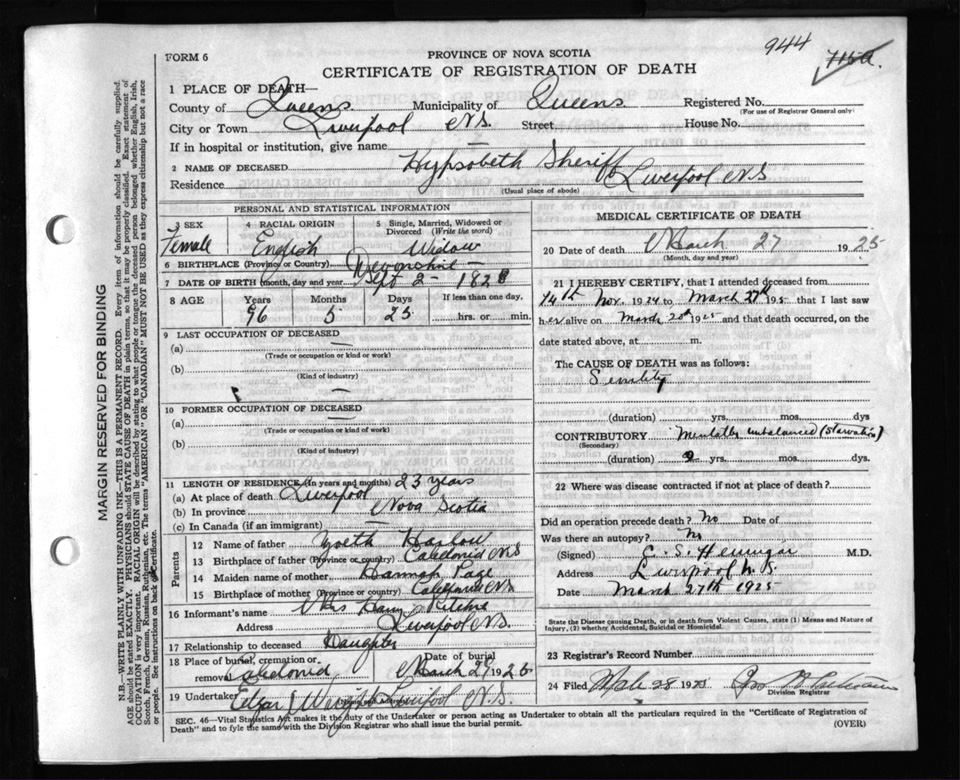 944 7150.
FORM 6
PROVINCE OF NOVA SCOTIA
CERTIFICATE OF REGISTRATION OF DEATH
1 PLACE OF DEATH—
County of Queens Municipality of Queens Registered No.
(For use of Registrar General only)
City or Town Liverpool N.S. Street House No.
If in hospital or institution, give name —
2 NAME OF DECEASED Hypsobeth Sheriff
Residence Liverpool N.S
(Usual place of abode)
PERSONAL AND STATISTICAL INFORMATION
3 SEX 4 RACIAL ORIGIN 5 Single, Married, Widowed or Divorced (Write the word)
Female English Widow
6 BIRTHPLACE (Province or Country) Devonshire
7 DATE OF BIRTH (month, day and year) Sept 2 - 1828
8 AGE Years Months Days If less than one day,
96 5 25 hrs. or min.
9 LAST OCCUPATION OF DECEASED
(a) —
(Trade or occupation or kind of work)
(b)
(Kind of industry)
10 FORMER OCCUPATION OF DECEASED
(a) —
(Trade or occupation or kind of work)
(b)
(Kind of industry)
11 LENGTH OF RESIDENCE (In years and months) 23 years
(a) At place of death Liverpool
(b) In province Nova Scotia
(c) In Canada (if an immigrant) —
Parents
12 Name of father Harlow
13 Birthplace of father (Province or country) Caledonia N.S
14 Maiden name of mother Hannah Page
15 Birthplace of mother (Province or country) Caledonia N.S
16 Informant's name Mrs Harry Ritchie
Address Liverpool N.S.
17 Relationship to deceased Daughter
18 Place of burial, cremation or removal Caledonia Date of burial March 29 1925
19 Undertaker Liverpool N.S.
MEDICAL CERTIFICATE OF DEATH
20 Date of death March 27 1925
(Month, day and year)
21 I HEREBY CERTIFY, that I attended deceased from
14th Nov. 1924 to March 27th 1925 that I last saw
her alive on March 20th 1925 and that death occurred, on the
date stated above, at m.
The CAUSE OF DEATH was as follows:
Senility
(duration) yrs. mos. dys
CONTRIBUTORY Mentally unbalanced (starvation)
(Secondary)
(duration) 2 yrs. mos. dys.
22 Where was disease contracted if not at place of death?
Did an operation precede death? No Date of
Was there an autopsy? No
(Signed) M.D.
Address Liverpool N.S.
Date March 27th 1925
State the Disease causing Death, or in death from Violent Causes, state (1) Means and Nature of Injury, (2) whether Accidental, Suicidal or Homicidal.
23 Registrar's Record Number
24 Filed Mch 28 1925
Division Registrar
SEC. 46—Vital Statistics Act makes it the duty of the Undertaker or person acting as Undertaker to obtain all the particulars required in the "Certificate of Registration of
Death" and to fyle the same with the Division Registrar who shall issue the burial permit. (OVER)
MARGIN RESERVED FOR BINDING
N.B.—WRITE PLAINLY WITH UNFADING INK—THIS IS A PERMANENT RECORD. Every item of information should be carefully supplied.
AGE should be stated EXACTLY. PHYSICIANS should STATE CAUSE OF DEATH in plain terms, so that it may be properly classified. Exact statement of
OCCUPATION is very important. RACIAL ORIGIN will be described by stating to what people or tongue the deceased person belonged whether English, Irish,
Scotch, French, German, Russian, Ruthenian, etc. The terms "AMERICAN" OR "CANADIAN" MUST NOT BE USED as they express citizenship but not a race
or people. See instructions on back of Certificate.